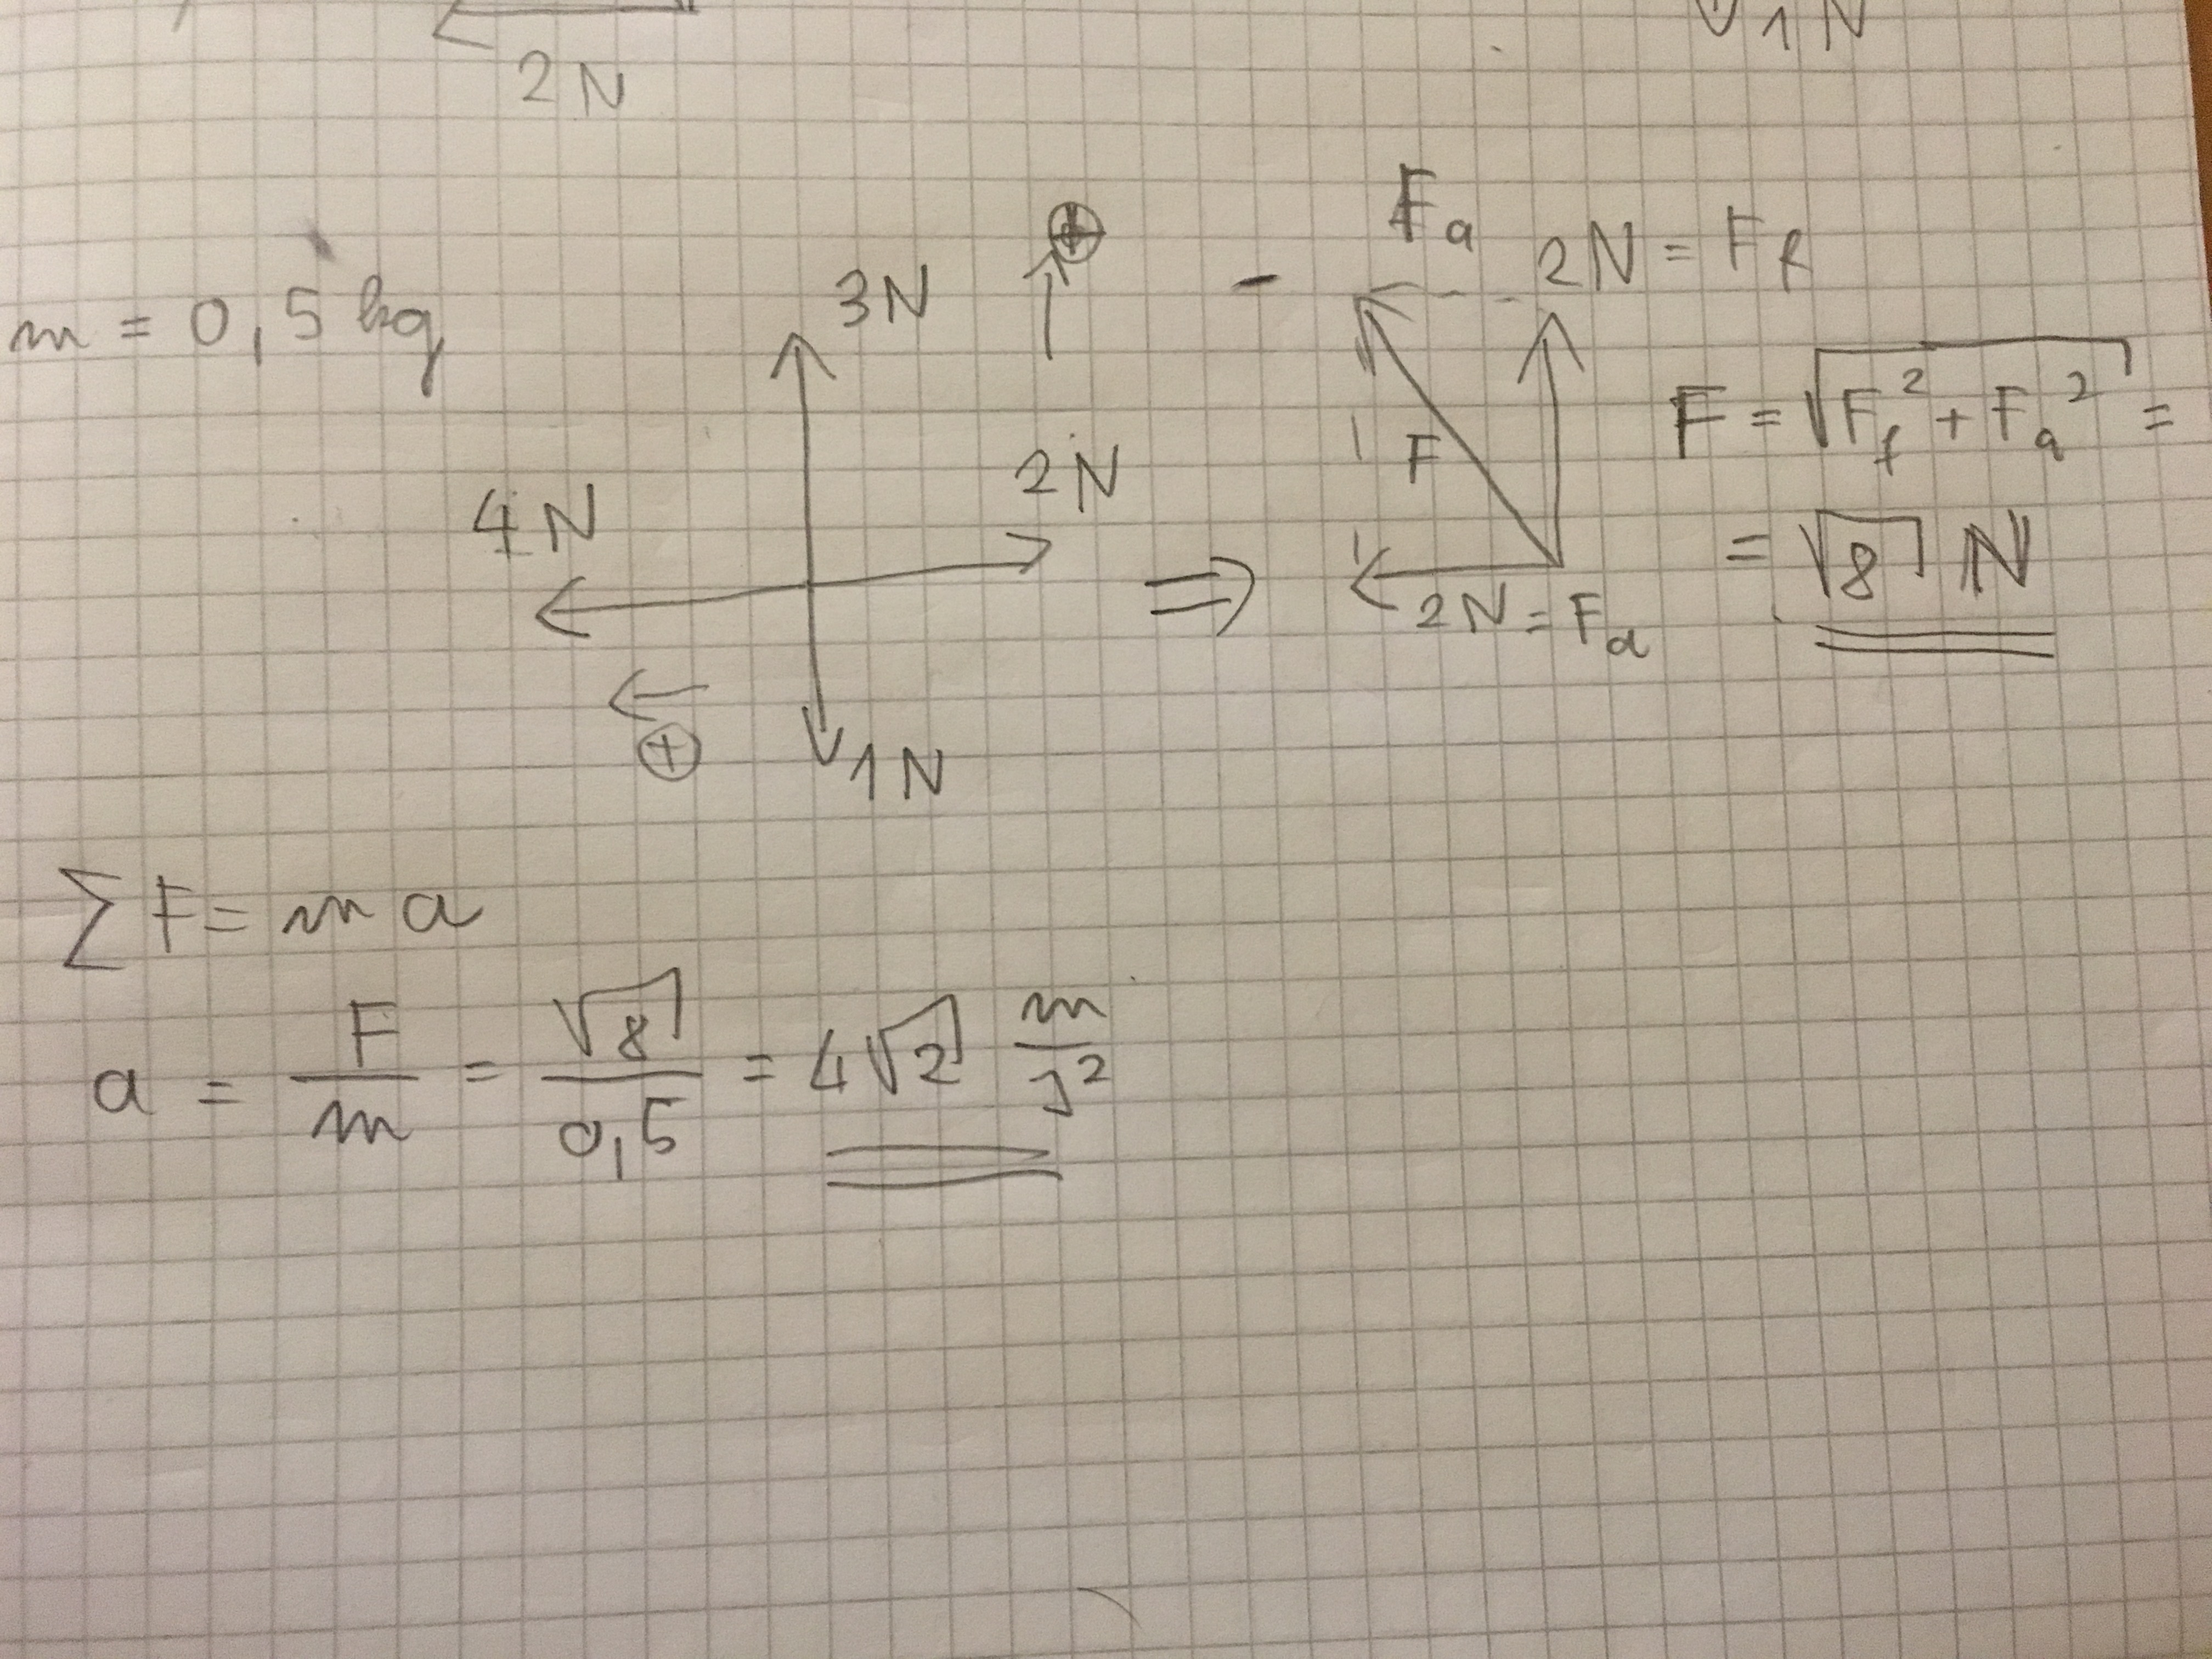 2N
1N
m = 0,5 kg
3N
⊕
4N
2N
⊕
1N
⇒
Fa
2N = Ff
F
2N = Fa
F = √(Ff² + Fa²) =
= √8 N
∑F = m a
a = F/m = √8/0,5 = 4√2 m/s²